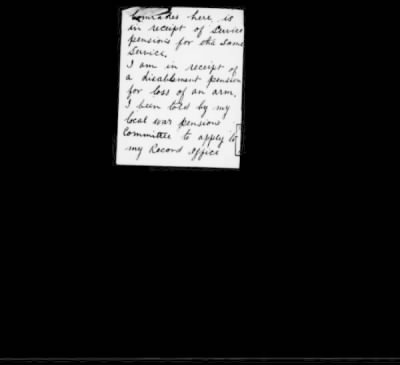 Comrades here, is
in receipt of Service
pensions for the same
Service.
I am in receipt of
a disablement pension
for loss of an arm.
I been told by my
local war pensions
Committee to apply to
my Record office